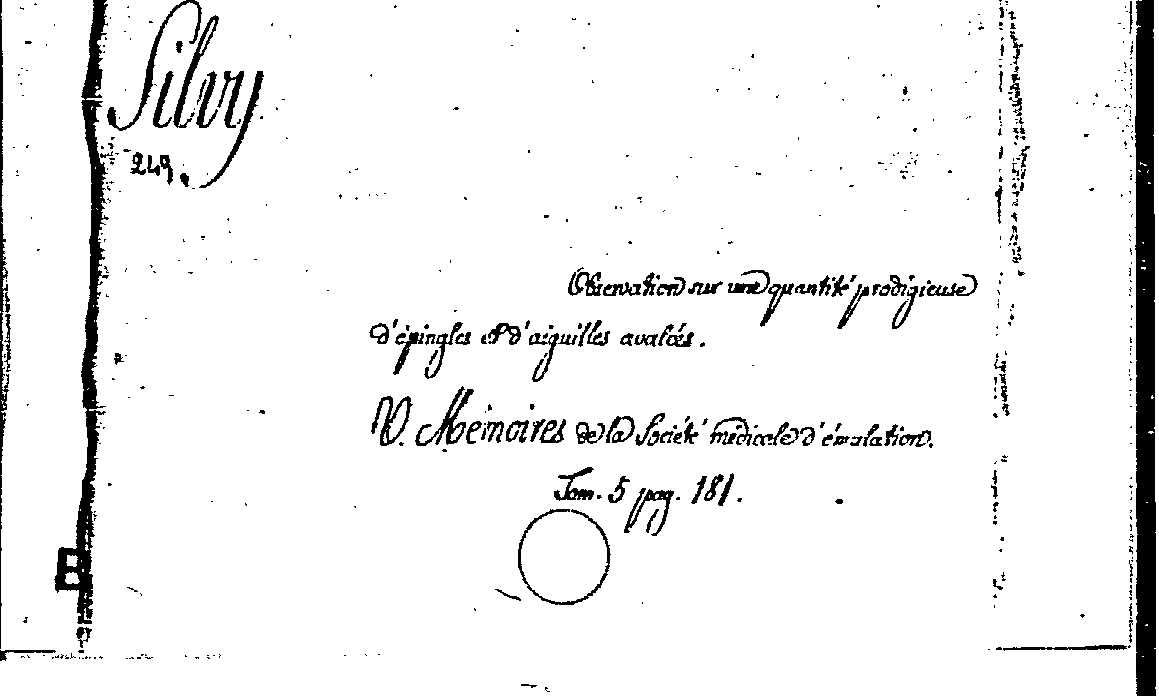 Silvy
249.
Observation sur une quantité prodigieuse
d'épingles et d'aiguilles avalées.
V. Mémoires de la Société médicale d'émulation.
Tom. 5 pag. 181.